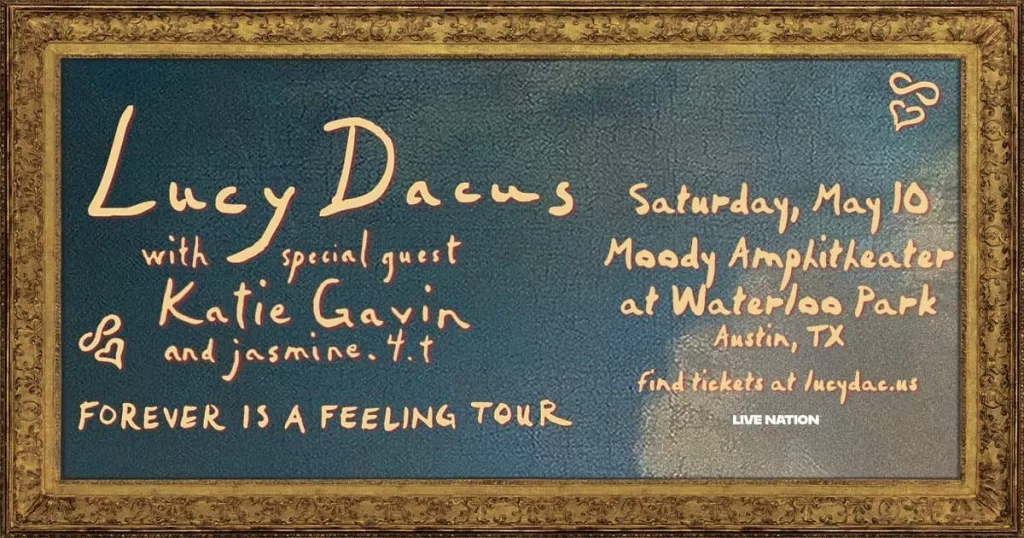 Lucy Dacus
with special guest
Katie Gavin
and jasmine.4.t
FOREVER IS A FEELING TOUR
Saturday, May 10
Moody Amphitheater
at Waterloo Park
Austin, TX
find tickets at lucydac.us
LIVE NATION